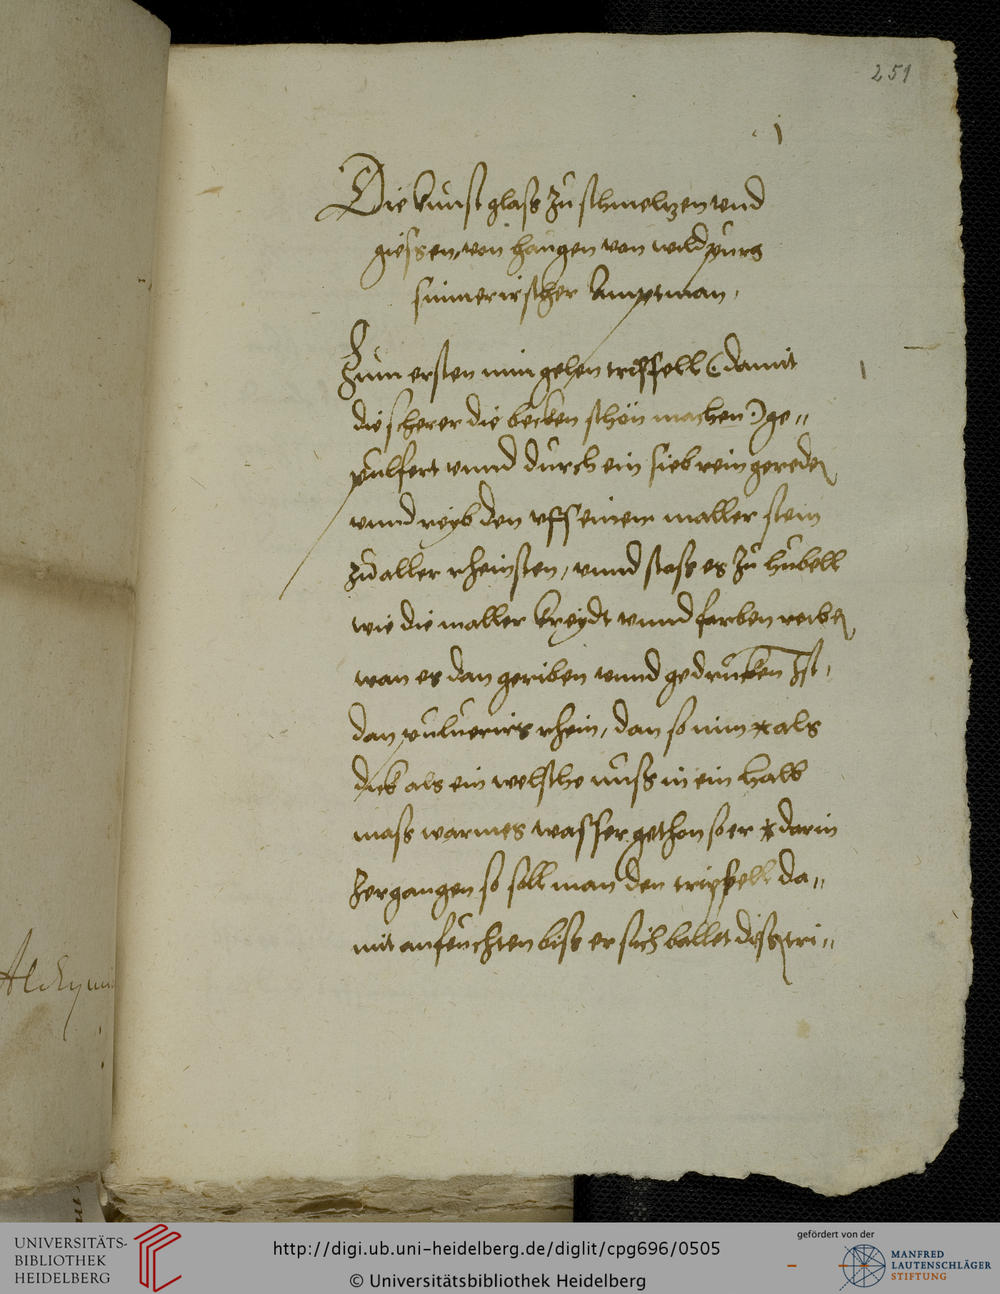 251
j
Die kunst glass zu schmeltzen vnd
giessen, von haugen von wildpurg
simerischer Amptman,
Zum ersten nim gelen trippell (damit
die scherer die becken schön machen) ge„
pulfert vnnd durch ein sieb rein geredē
vnnd reyb den vff einem maller stein
zu aller rheinsten, vnnd stoss es zu hubell
wie die maller kreydt vnnd farben reibē
wan es dan geriben vnnd gedrucken Ist,
dan puluerirs rhein, dan so nim * als
dick als ein welsche nuss in ein halb
mass warmes wasser gethon so er * darin
Zergangen so soll man den trippell da„
mit anfeuchten biss er sich ballet diss tri„
Alchym
UNIVERSITÄTS-
BIBLIOTHEK
HEIDELBERG
http://digi.ub.uni-heidelberg.de/diglit/cpg696/0505
© Universitätsbibliothek Heidelberg
gefördert von der
MANFRED
LAUTENSCHLÄGER
STIFTUNG